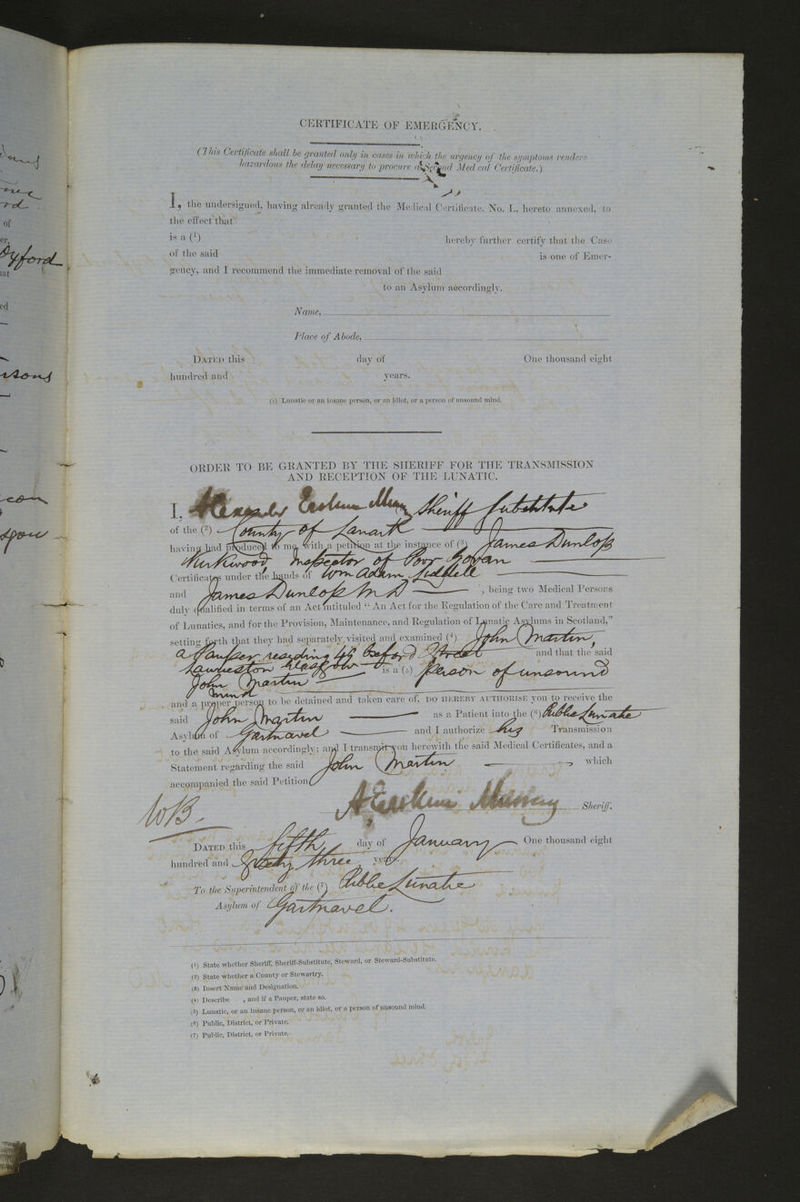 CERTIFICATE OF EMERGENCY.
(This Certificate shall be granted only in cases in which the urgency of the symptoms renders
hazardous the delay necessary to procure a Second Medical Certificate.)
I, the undersigned, having already granted the Medical Certificate, No. I., hereto annexed, to
the effect that
is a (1) hereby further certify that the Case
of the said is one of Emer-
gency, and I recommend the immediate removal of the said
to an Asylum accordingly.
Name,
Place of Abode,
DATED this day of One thousand eight
hundred and years.
(1) Lunatic or an insane person, or an idiot, or a person of unsound mind.
ORDER TO BE GRANTED BY THE SHERIFF FOR THE TRANSMISSION
AND RECEPTION OF THE LUNATIC.
I, Alexander Erskine Murray Sheriff Substitute
of the (2) County of Lanark
having had produced to me, with a petition at the instance of (3) James Dunlop
Kirkwood, Inspector of Poor Govan
Certificates under the hands of Wm Adam Liddell
and James Dunlop M D , being two Medical Persons
duly qualified in terms of an Act intituled "An Act for the Regulation of the Care and Treatment
of Lunatics, and for the Provision, Maintenance, and Regulation of Lunatic Asylums in Scotland,"
setting forth that they had separately visited and examined (4) John Martin,
a Pauper residing 49 Street and that the said
Glasgow
John Martin is a (5) Person of unsound
mind
and a proper person to be detained and taken care of, DO HEREBY AUTHORISE you to receive the
said John Martin as a Patient into the (6) Public Lunatic
Asylum of Gartnavel and I authorize his Transmission
to the said Asylum accordingly; and I transmit you herewith the said Medical Certificates, and a
Statement regarding the said John Martin which
accompanied the said Petition
A Erskine Murray Sheriff.
WB.
DATED this fifth day of January One thousand eight
hundred and Sixty three years
To the Superintendent of the (7) Public Lunatic
Asylum of Gartnavel.
(1) State whether Sheriff, Sheriff-Substitute, Steward, or Steward-Substitute.
(2) State whether a County or Stewartry.
(3) Insert Name and Designation.
(4) Describe , and if a Pauper, state so.
(5) Lunatic, or an insane person, or an idiot, or a person of unsound mind.
(6) Public, District, or Private.
(7) Public, District, or Private.